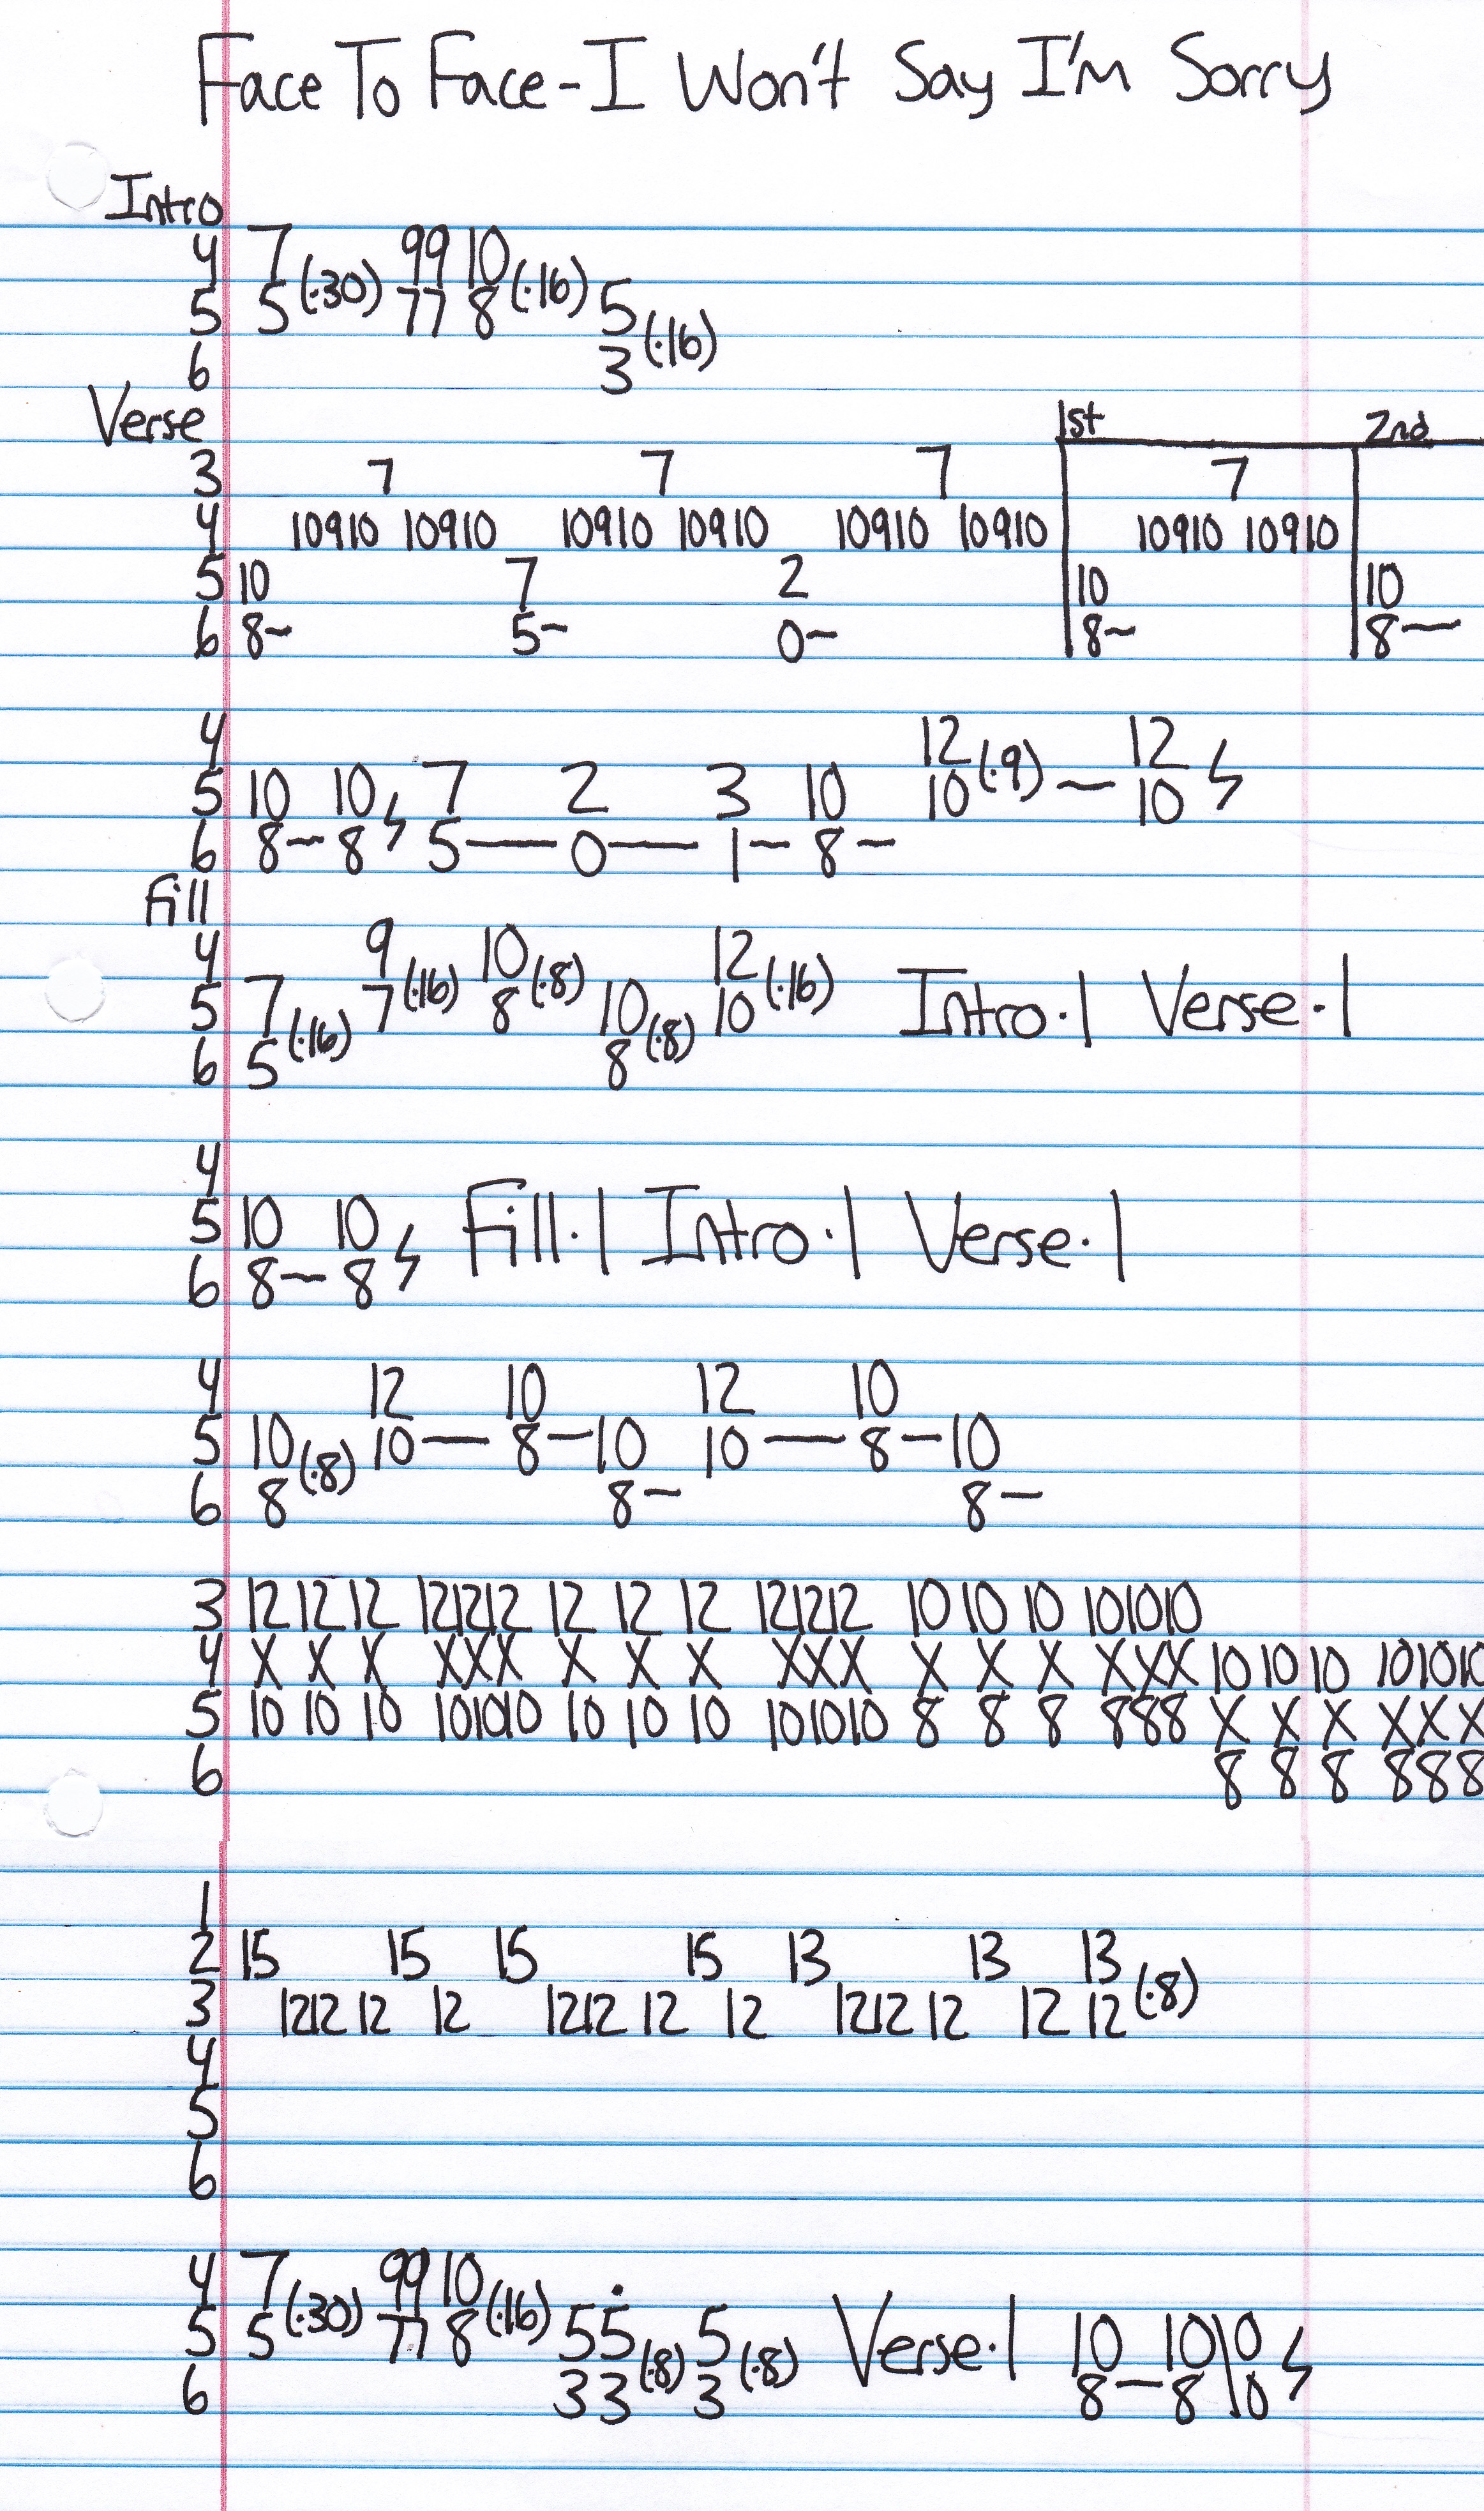 Face To Face - I Won't Say I'm Sorry
Intro
4 7 (·30) 99 10 (·16)
5 5 77 8 5 (·16)
6 3
Verse 1st 2nd
3 7 7 7 7
4 10910 10910 10910 10910 10910 10910 10910 10910
5 10 7 2 10 10
6 8~ 5~ 0~ 8~ 8—
4 12 (·9) 12
5 10 10 7 2 3 10 10 — 10
6 8~8 5—0—1~8~
Fill
4 9 (·16) 10 (·8) 12 (·16)
5 7 (·16) 7 8 10 (·8) 10 Intro·1 Verse·1
6 5 8
4
5 10 10 Fill·1 Intro·1 Verse·1
6 8~8
4 12 10 12 10
5 10 (·8) 10—8—10 10—8—10
6 8 8~ 8~
3 12 12 12 121212 12 12 12 121212 10 10 10 101010
4 X X X XXX X X X XXX X X X XXX 10 10 10 101010
5 10 10 10 101010 10 10 10 101010 8 8 8 888 X X X XXX
6 8 8 8 888
1
2 15 15 15 15 13 13 13 (·8)
3 1212 12 12 1212 12 12 1212 12 12 12
4
5
6
4 7 (·30) 99 10 (·16)
5 5 77 8 55 (·8) 5 (·8) Verse·1 10 10\0
6 33 3 8—8\0